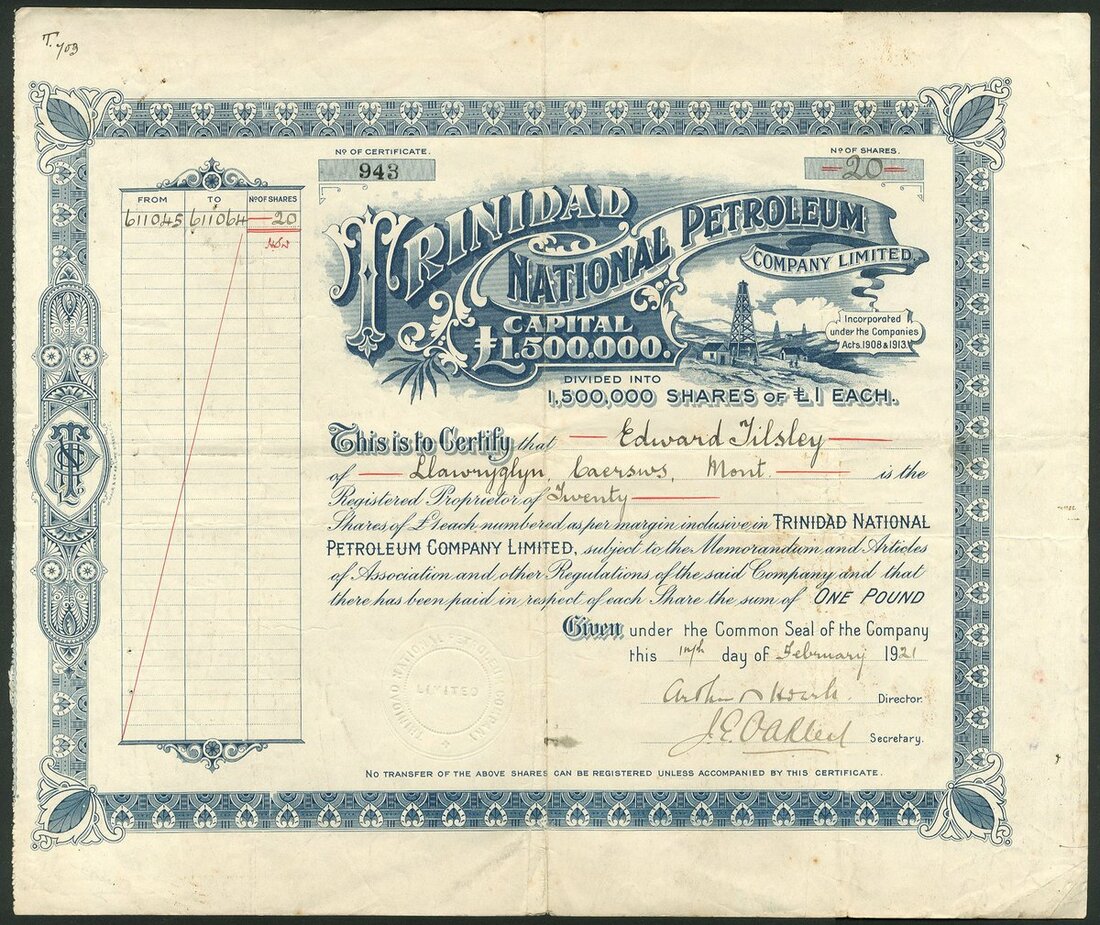 T. 703
Nº OF CERTIFICATE.
943
Nº OF SHARES.
20
FROM TO Nº OF SHARES
611045 611064 20
TRINIDAD
NATIONAL PETROLEUM
COMPANY LIMITED.
CAPITAL
£1.500.000.
Incorporated
under the Companies
Acts. 1908 & 1913.
DIVIDED INTO
1,500,000 SHARES OF £1 EACH.
This is to Certify that Edward Tilsley
of Llawryglyn, Caersws, Mont is the
Registered Proprietor of Twenty
Shares of £1 each numbered as per margin inclusive in TRINIDAD NATIONAL
PETROLEUM COMPANY LIMITED, subject to the Memorandum and Articles
of Association and other Regulations of the said Company and that
there has been paid in respect of each Share the sum of ONE POUND
Given under the Common Seal of the Company
this day of February 1921
Director.
Secretary.
LIMITED
NO TRANSFER OF THE ABOVE SHARES CAN BE REGISTERED UNLESS ACCOMPANIED BY THIS CERTIFICATE.